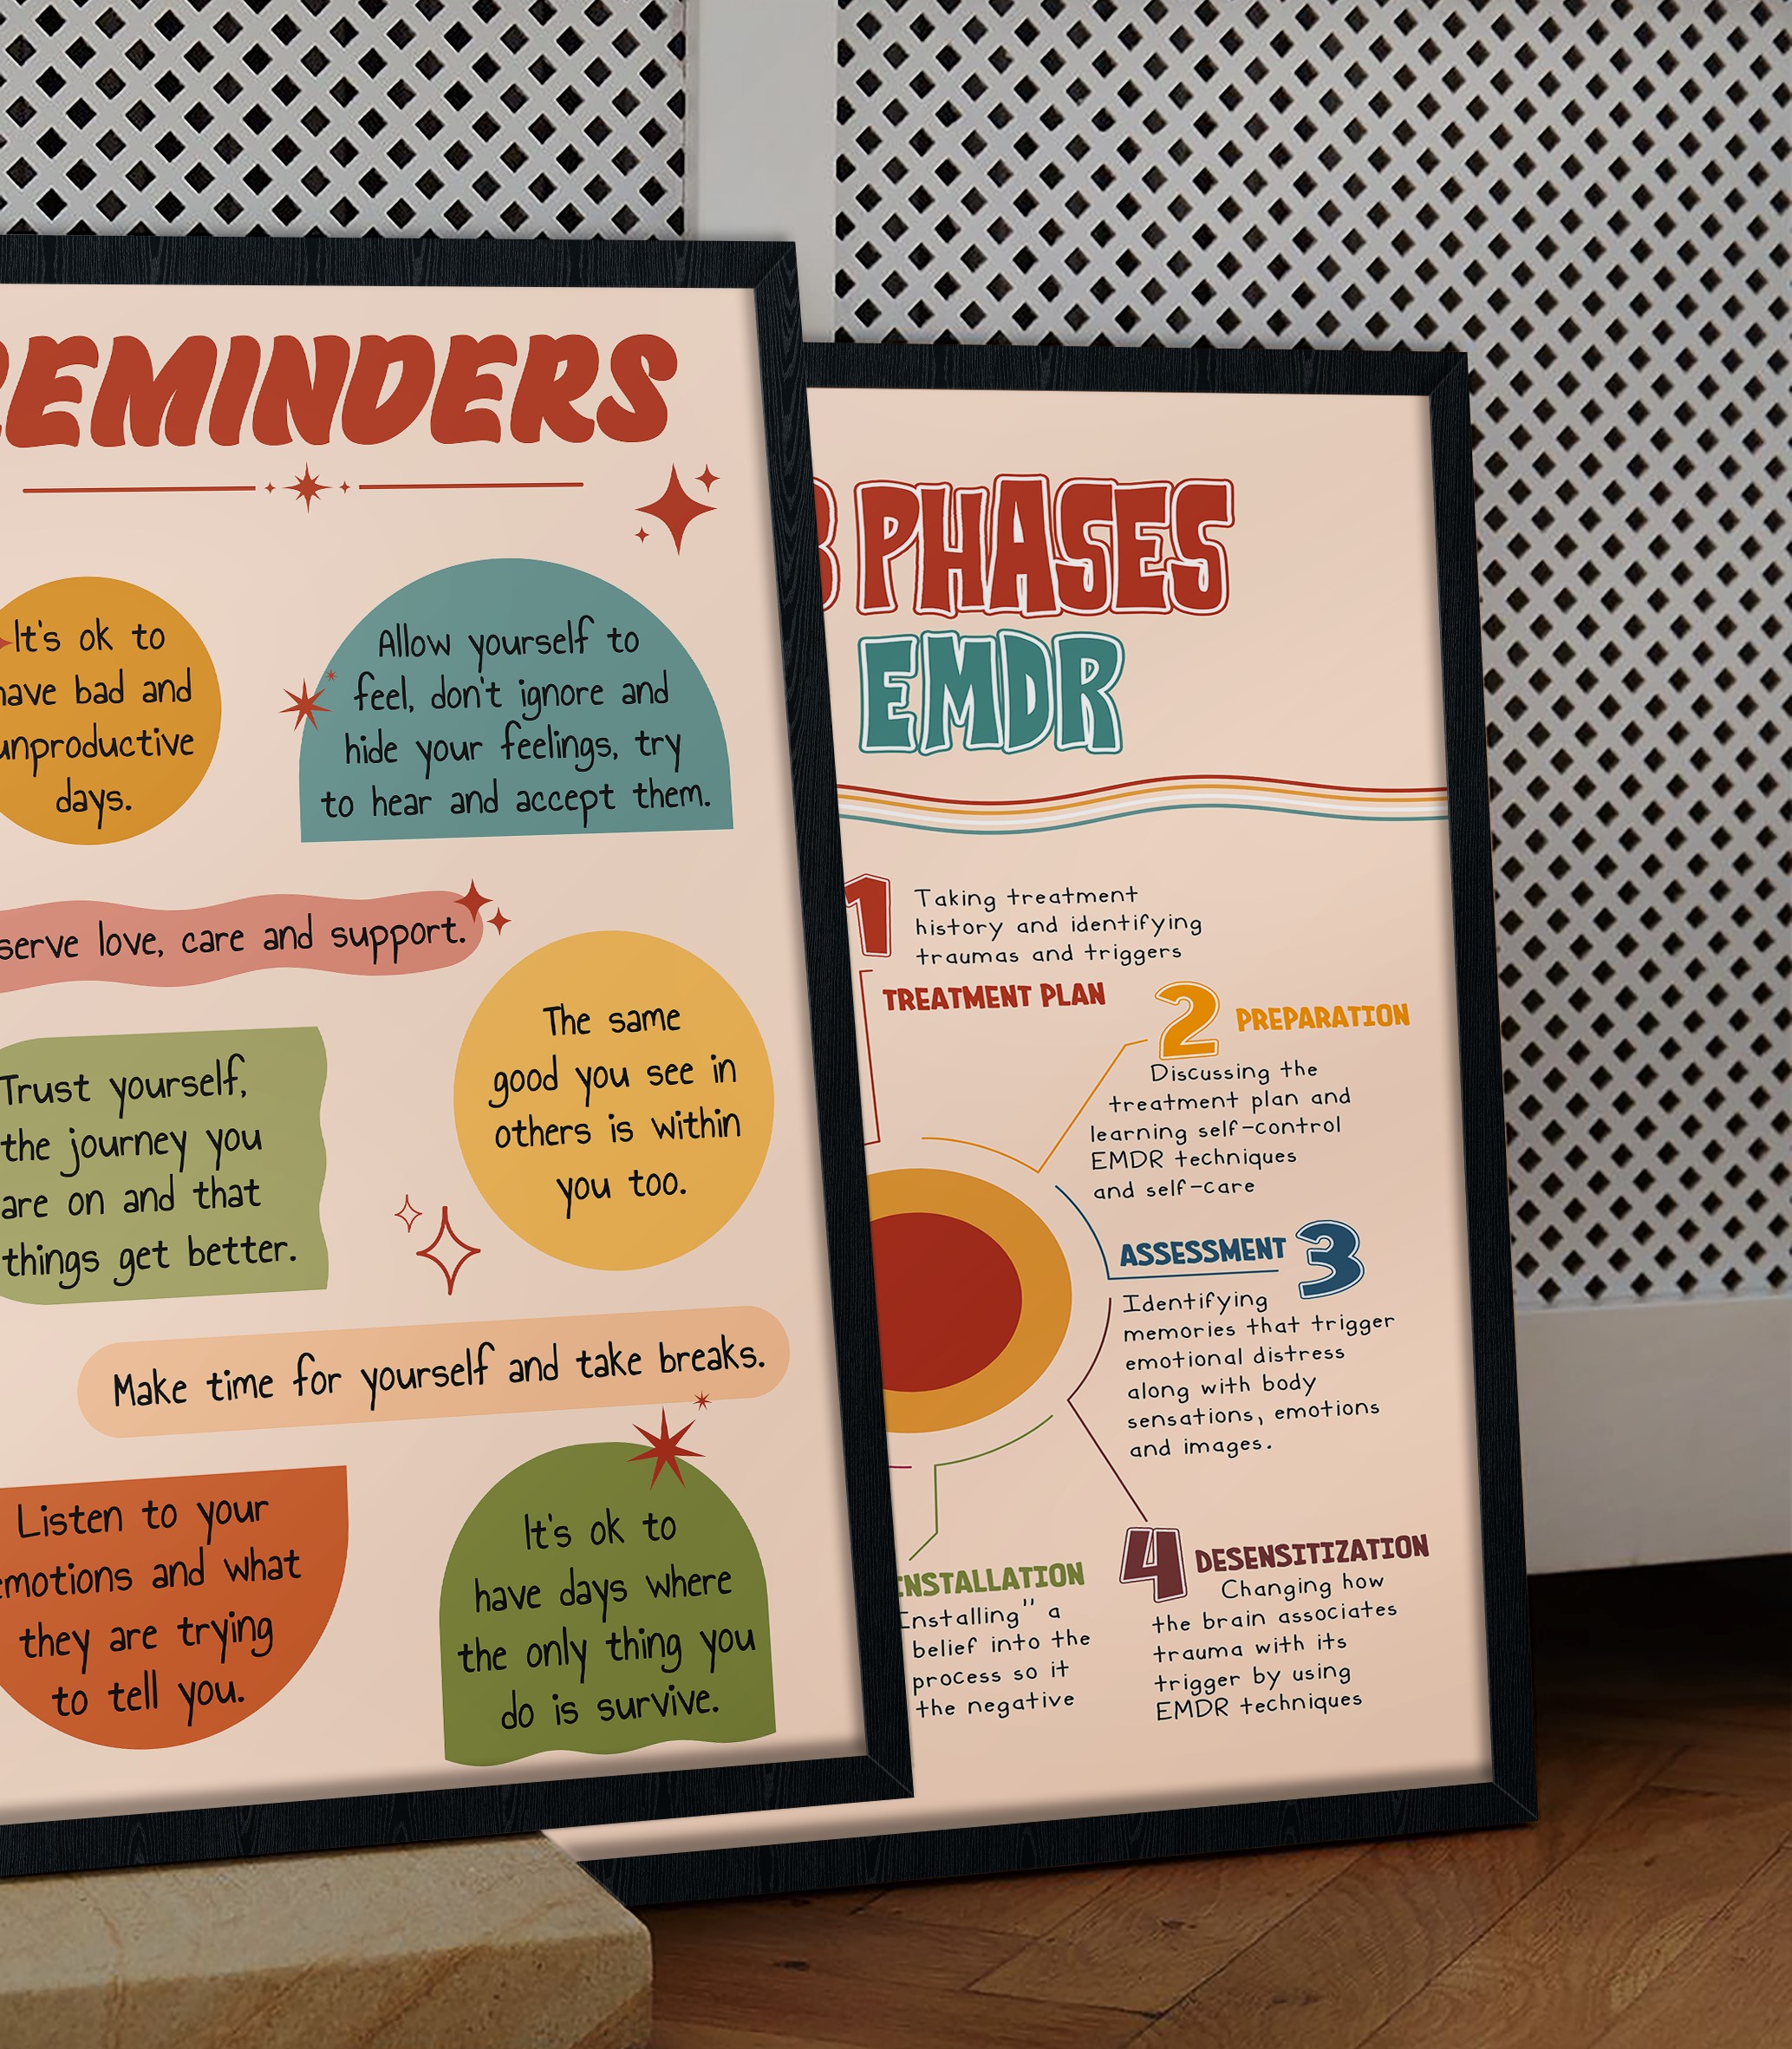 REMINDERS
It's ok to
have bad and
unproductive
days.
Allow yourself to
feel, don't ignore and
hide your feelings, try
to hear and accept them.
serve love, care and support.
The same
good you see in
others is within
you too.
Trust yourself,
the journey you
are on and that
things get better.
Make time for yourself and take breaks.
Listen to your
emotions and what
they are trying
to tell you.
It's ok to
have days where
the only thing you
do is survive.
8 PHASES
EMDR
1
Taking treatment
history and identifying
traumas and triggers
TREATMENT PLAN
2 PREPARATION
Discussing the
treatment plan and
learning self-control
EMDR techniques
and self-care
ASSESSMENT 3
Identifying
memories that trigger
emotional distress
along with body
sensations, emotions
and images.
4 DESENSITIZATION
Changing how
the brain associates
trauma with its
trigger by using
EMDR techniques
INSTALLATION
Installing" a
belief into the
process so it
the negative